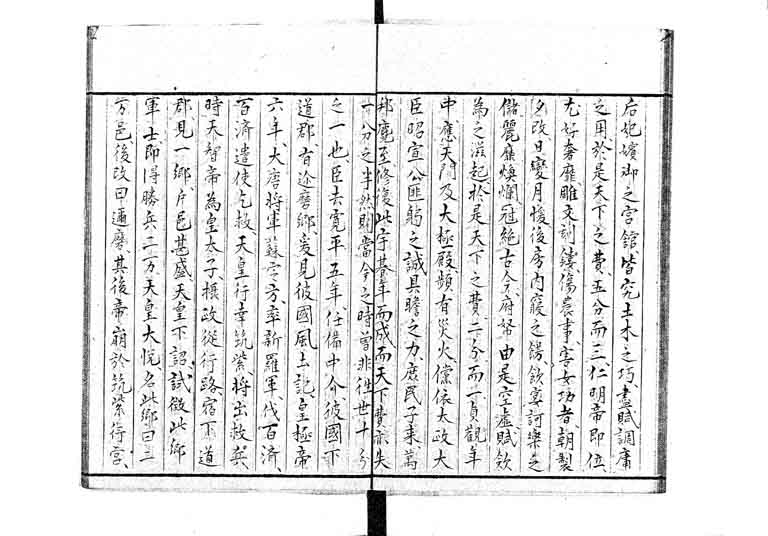 后妃嬪御之宮館皆究土木之巧盡賦調庸
之用於是天下之費五分而三仁明帝即位
尤好奢靡雕文刻鏤傷農事害女功者朝製
夕改日變月悛後房內寢之餝飲宴訶樂之
儲麗靡煥爛冠絕古今府帑由是空虛賦斂
為之滋起於是天下之費二分而一貞觀年
中應天門及大極殿頻有災火儻依太政大
臣昭宣公匪躬之誠具瞻之力庶民子來萬
邦麕至修復此宇朞年而成而天下費亦失
一分之半然則當今之時曾非往世十分
之一也臣去寛平五年任備中介彼國下
道郡有迩磨鄉爰見彼國風土記皇極帝
六年大唐將軍蘇定方率新羅軍伐百濟
百濟遣使乞救天皇行幸筑紫將出救兵
時天智帝為皇太子攝政從行路宿下道
郡見一鄉戶邑甚盛天皇下詔試徵此鄉
軍士即得勝兵二万天皇大悅名此鄉曰二
万邑後改曰邇磨其後帝崩於筑紫行宮